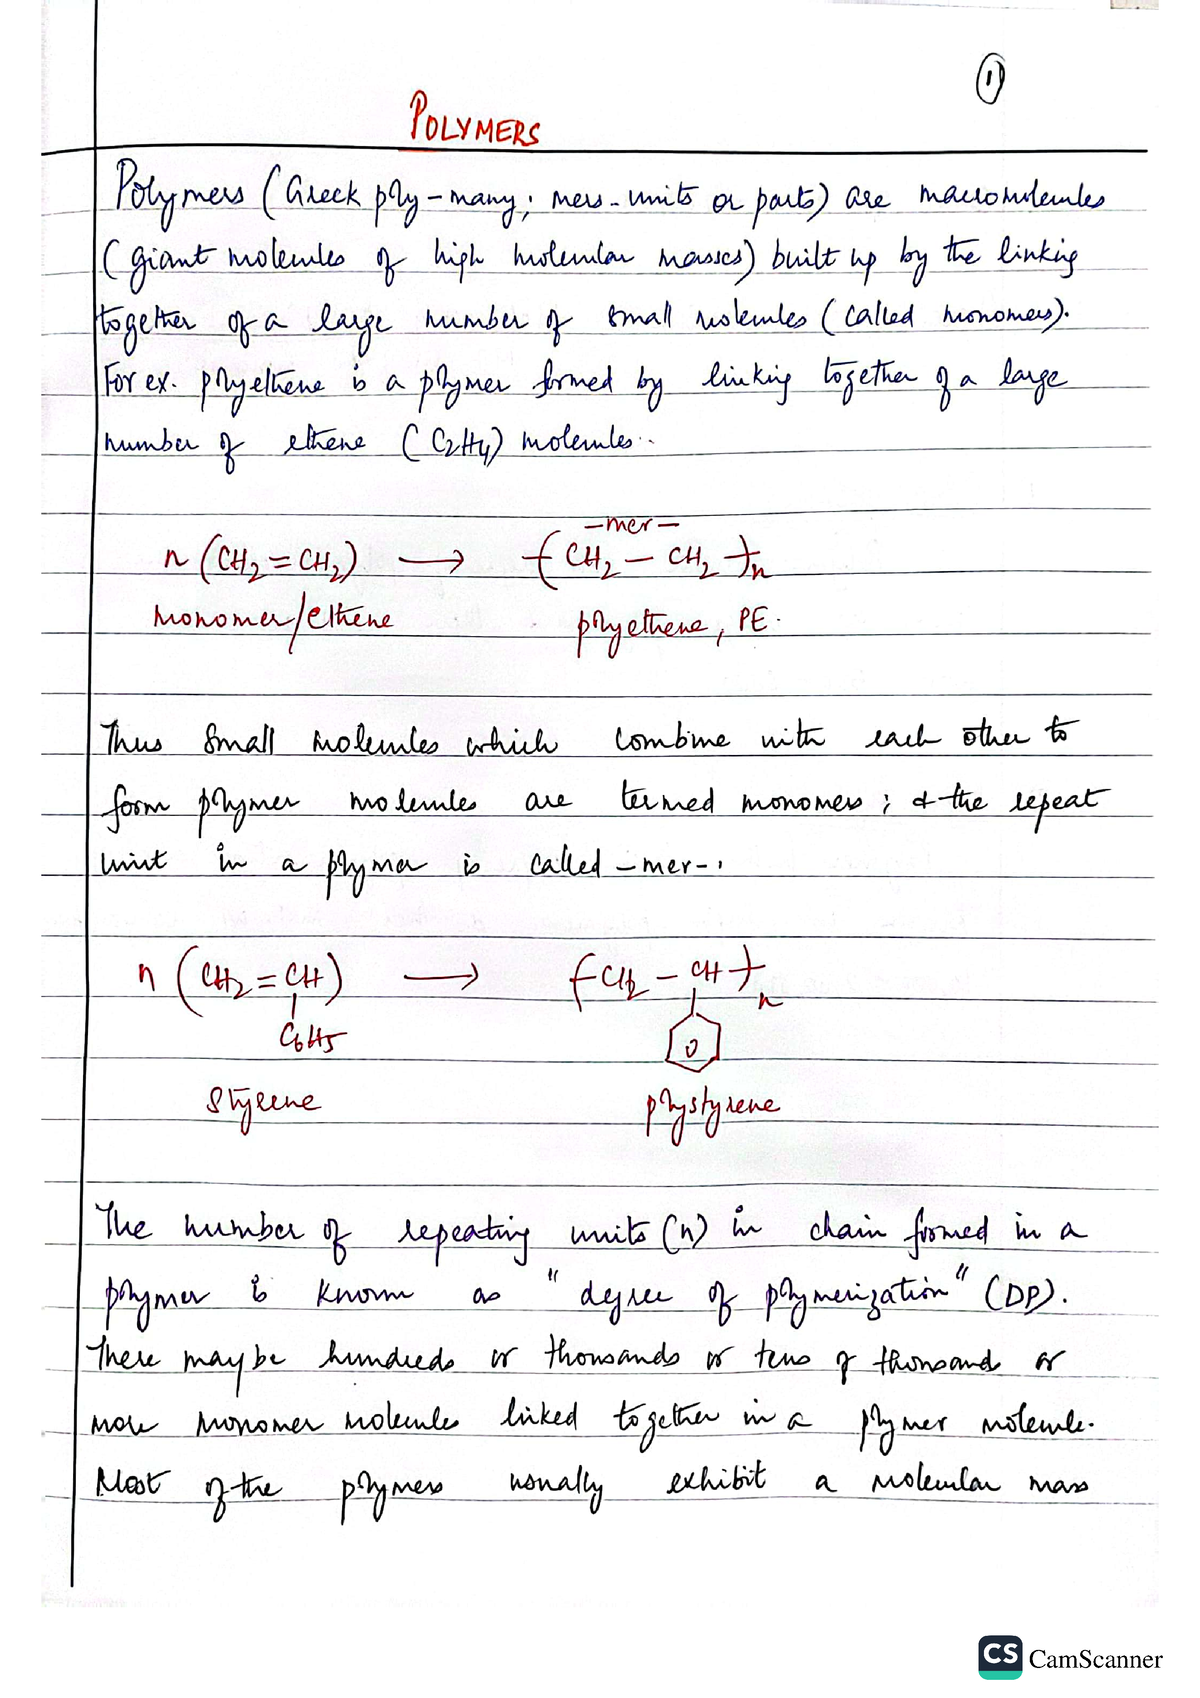 1
POLYMERS
Polymers (Greek poly-many; mers-units or parts) are macromolecules
(giant molecules of high molecular masses) built up by the linking
together of a large number of small molecules (called monomers).
For ex. polyethene is a polymer formed by linking together of a large
number of ethene (C2H4) molecules.
-mer-
n(CH2=CH2) → -(CH2-CH2-)n
monomer/ethene polyethene, PE.
Thus small molecules which combine with each other to
form polymer molecules are termed monomers; & the repeat
unit in a polymer is called -mer-.
n(CH2=CH) → -(CH2-CH-)n
C6H5
Styrene polystyrene
The number of repeating units (n) in chain formed in a
polymer is known as "degree of polymerization" (DP).
There maybe hundreds or thousands or tens of thousand or
more monomer molecules linked together in a polymer molecule.
Most of the polymers usually exhibit a molecular mass
CS CamScanner